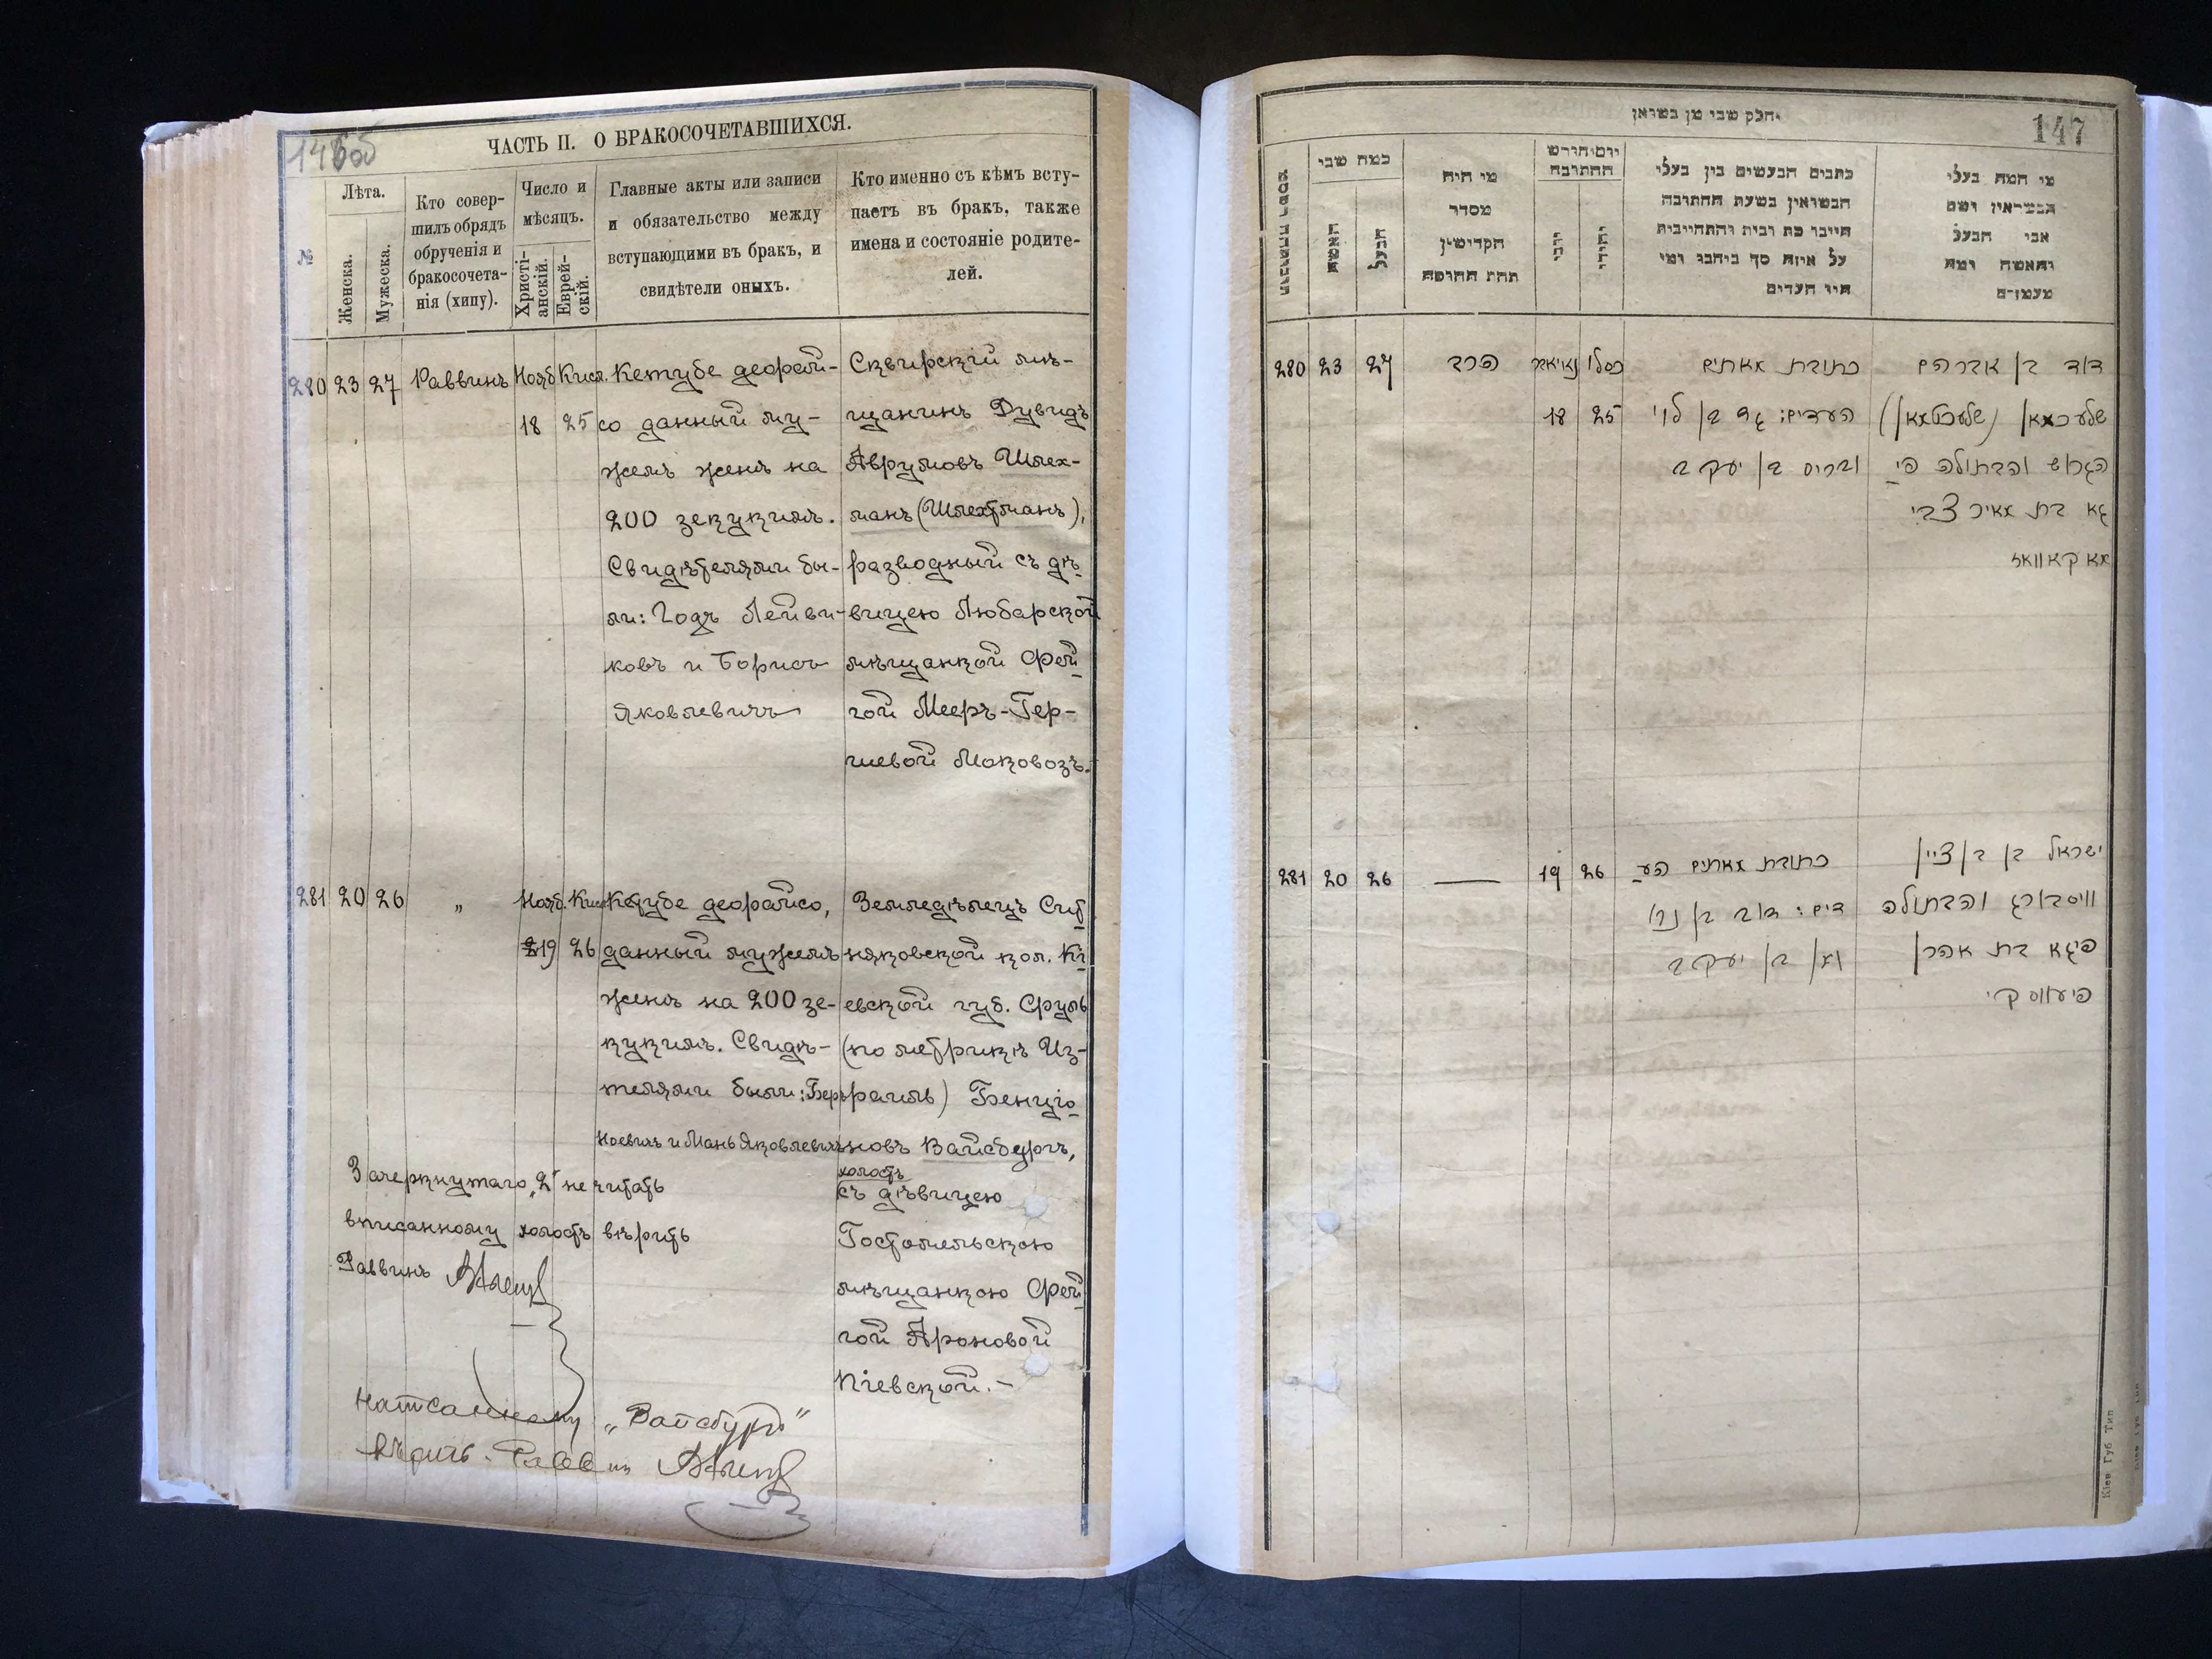 ЧАСТЬ II. О БРАКОСОЧЕТАВШИХСЯ.
№
Лѣта.
Женска.
Мужеска.
Кто совер-
шилъ обрядъ
обрученія и
бракосочета-
нія (хипу).
Число и
мѣсяцъ.
Христі-
анскій.
Еврей-
скій.
Главные акты или записи
и обязательство между
вступающими въ бракъ, и
свидѣтели оныхъ.
Кто именно съ кѣмъ всту-
паетъ въ бракъ, также
имена и состояніе родите-
лей.
280 23 27 Раввинъ Нояб. Кисл.
18 25
Кетубе деорай-
со данный му-
жемъ женѣ на
200 зекукимъ.
Свидѣтелями бы-
ли: Годъ Лейви-
ковъ и Борисъ
Яковлевичъ
Сквирскій мѣ-
щанинъ Дувидъ
Аврумовъ Шлех-
манъ (Шлехтманъ),
разводный съ дѣ-
вицею Любарской
мѣщанкой Фей-
гой Мееръ-Гер-
шевой Маковозъ.
281 20 26 „ Нояб. Кисл.
19 26
Кетубе деорайсо,
данный мужемъ
женѣ на 200 зе-
кукимъ. Свидѣ-
телями были: Беръ
Ноевичъ и Мань Яковлевичъ
Земледѣлецъ Сит-
няковской кол. Кі-
евской губ. Сруль
(по метрикѣ Из-
раиль) Бенціо-
новъ Вайсбургъ,
холостъ
съ дѣвицею
Гостомельскою
мѣщанкою Фей-
гой Ароновой
Кіевской.-
Зачеркнутаго „2" не читать
вписанному холостъ вѣрить
Раввинъ
написанному „Вайсбургъ"
вѣрить. Раввинъ
147
חלק שני מן נשואן
כמה שני
האשה
הבעל
מי היה
מסדר
הקדושין
תחת החופה
יום וחודש
החתונה
יהודי
כתבים הנעשים בין בעלי
הנשואין בשעת החתונה
על איזה סך ניתנו ומי
היו העדים
280 23 27 הרב
כסלו
18 25
כתובת מאתים
העדים: גד בן לוי
ובריס בן יעקב
דוד בן אברהם
שלעכמאן (שלעכטמאן)
הגרוש והבתולה פי
גא בת מאיר צבי
מאקאוואז
281 20 26 — 19 26
כתובת מאתים הע
דים: דוב בן נח
ומן בן יעקב
ישראל בן בן ציין
ווייסבורג והבתולה
פיגא בת אהרן
Кіев Губ Тип